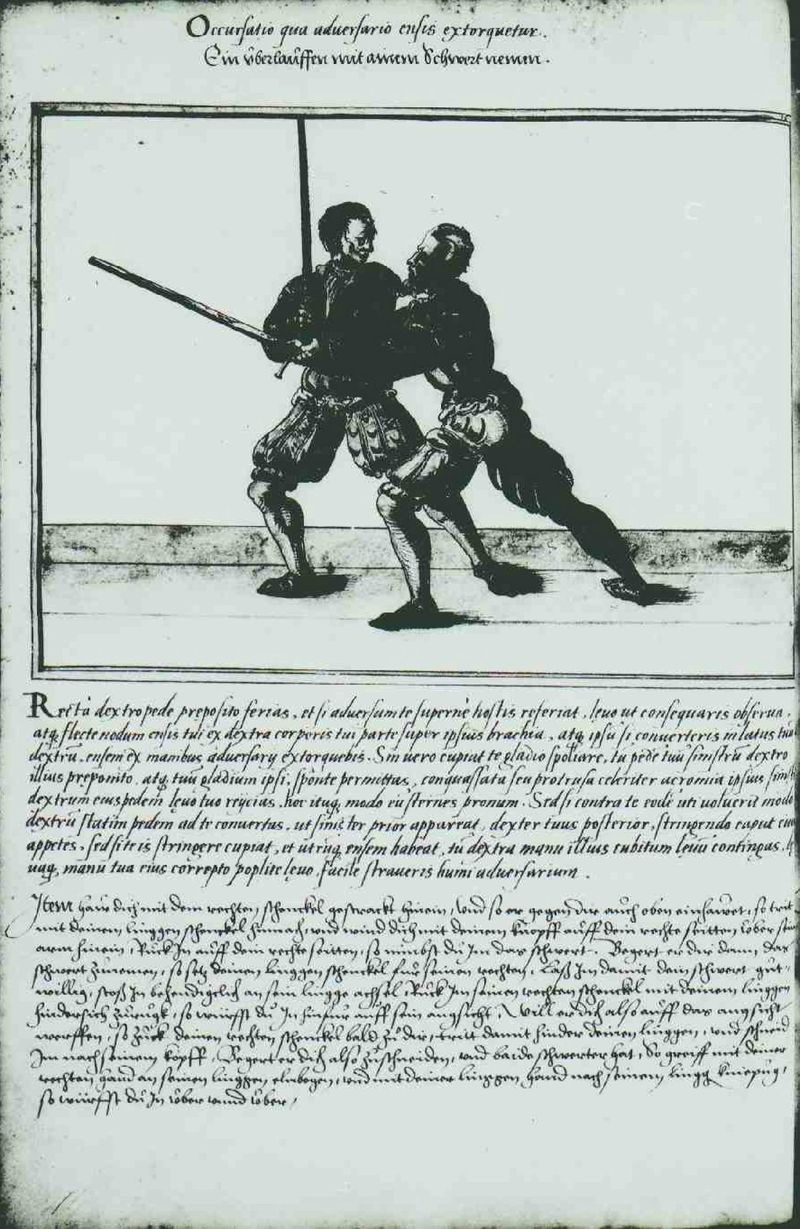 Occursatio qua adversario ensis extorquetur.
Ein v̊berlauffen mit ainem Schwert nemen.
Recta dextro pede preposito ferias, et si adversum te superne hostis referiat, levo ut consequaris observa,
atq̃ flecte nodum ensis tui ex dextra corporis tui parte super ipsius brachia, atq̃ ipsū si converteris in latus tuū
dextrū, ensem ex manibus adversarij extorquebis. Sin vero cupiat te gladio spoliare, tu pede tuū sinistrū dextro
illius preponito, atq̃ tuū gladium ipsi, sponte permittas, conquassata seu protrusa celeriter acromia ipsius
dextrum eius pedem levo tuo reijcias, hoc itaq̃ modo eū sternes pronum. Sed si contra te eodē uti voluerit modo
dextrū statim pedem ad te convertas, ut sinister prior appareat, dexter tuus posterior, stringendo caput
appetes, sed si te is stringere cupiat, et utrūq̃ ensem habeat, tū dextra manu illius cubitum levū contingas,
manu tua eius correpto poplite levo, facile straveris humi adversarium.
Item haw dich mit dem rechten schenckel gestrackt hinein, vnd so er gegen dir auch oben einhawet, so trit
mit deinem linggen schenckel hinnach, vnd wind dich mit deinem knopff auff dein rechte seitten v̊ber sein
arm hinein, Ruck In auff dein rechte seitten, so nimbst du Im das schwert. Begert er dir dann das
schwert zunemen, so setz deinen linggen schenckel fur seinen rechten, laß Im damit dein schwert gut
willig, stoß In behendigclich an sein lingge achsel, Ruck Im seinen rechten schenckel mit deinem linggen
hindersich zurugk, so wurffst du In hinfur auff sein angsicht, Will er dich also auff das angsicht
werffen, so zuck deinen rechten schenckel bald zu dir, trit damit hinder deinen linggen, vnd schneid
Im nach seinem kopff, Begert er dich also zuschneiden, vnd baide schwerter hat, So greiff mit deiner
rechten hand an seinen linggen elnbogen, vnd mit deiner linggen hand nach seinem lingg kniepug,
so wurffst du In v̊ber vnnd v̊ber,